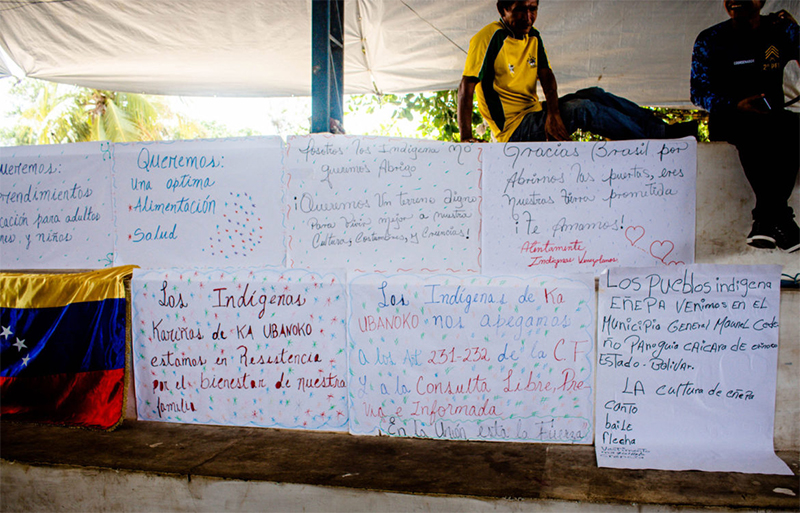 Queremos:
rendimientos
cación para adultos
y niños
Queremos:
una optima
Alimentación
Salud
Nosotros los Indígena No
queremos Abrigo
¡Queremos Un terreno digno
Para vivir mejor a nuestra
Cultura, Costumbres, y Creencias!
Gracias Brasil por
Abrirnos las puertas, eres
nuestra tierra prometida
¡Te Amamos!
Atentamente,
Indígenas Venezolanos
Los Indígenas
Kariñas de KA UBANOKO
estamos en Resistencia
por el bienestar de nuestra
familia
Los Indígenas de Ka
UBANOKO nos apegamos
a los Art 231-232 de la C.F
y a la Consulta Libre, Pre-
via e Informada
"En la Unión está la Fuerza"
Los Pueblos indigena
EÑEPA Venimos en el
Municipio General Manuel Cede
ño Paroquia CAicara de
Estado. Bolívar.
LA cultura de eñepa
Canto
baile
flecha